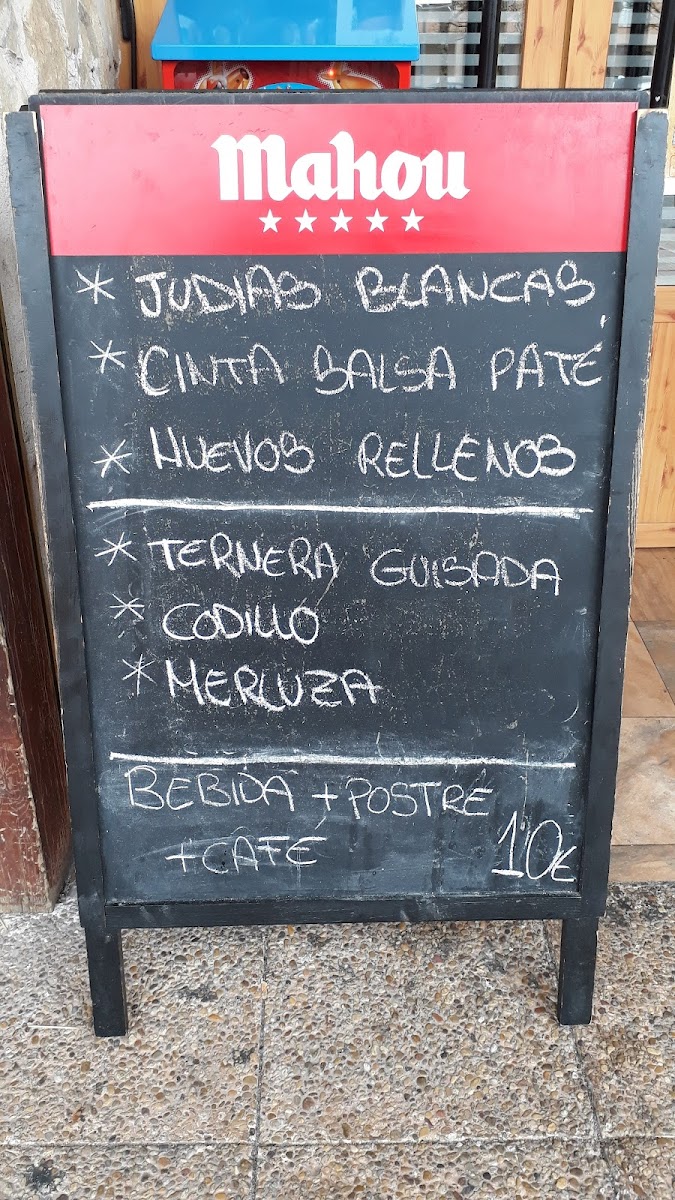 Mahou
* JUDIAS BLANCAS
* CINTA BALSA PATÉ
* HUEVOS RELLENOS
* TERNERA GUISADA
* CODILLO
* MERLUZA
BEBIDA + POSTRE
+ CAFÉ 10€